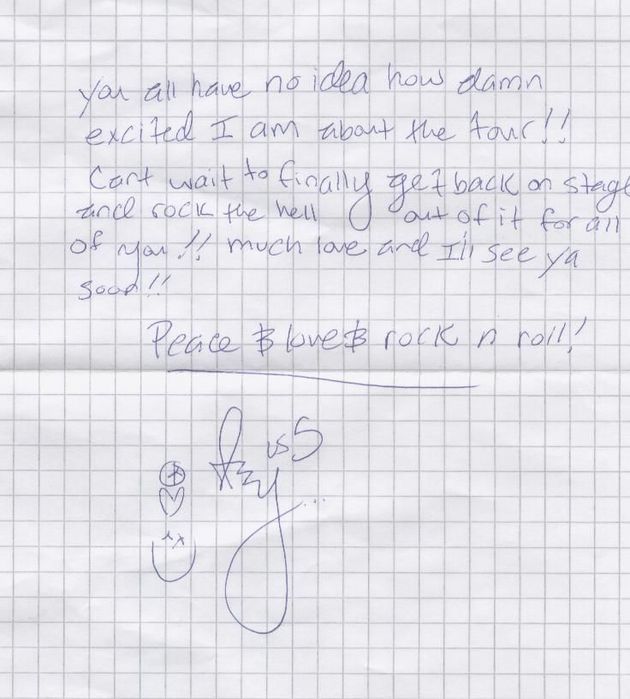 you all have no idea how damn
excited I am about the tour!!
Cant wait to finally get back on stage
and rock the hell out of it for all
of you!! much love and I'll see ya
soon!!
Peace $ love $ rock n roll!